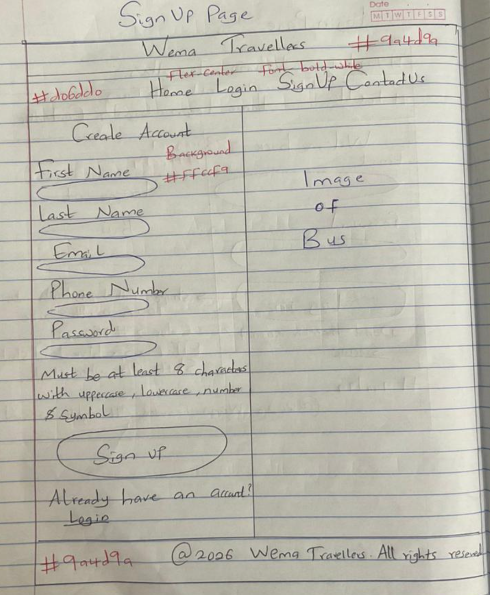 Sign Up Page
Date
M T W T F S S
Wema Travellers #9a4d9a
Flex-center font-bold-white
#d06dd0 Home Login SignUp ContactUs
Create Account
Background
#ffccf9
First Name
Last Name
Email
Phone Number
Password
Must be at least 8 characters
with uppercase, lowercase, number
& symbol
Sign up
Already have an account?
Login
Image
of
Bus
#9a4d9a @2026 Wema Travellers. All rights reserved